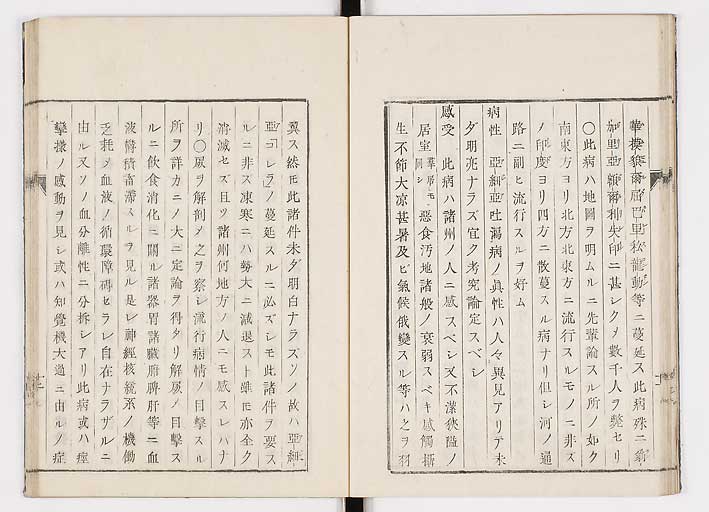 華楼貌爾福巴里私龍動等ニ蔓延ス此病殊ニ
如里亜 ニ甚シクメ数千人ヲ斃セリ
〇此病ハ地圖ヲ明ムルニ先輩論スル所ノ如ク
南東方ヨリ北方北東方ニ流行スルモノニ非ズ
ノ印度ヨリ四方ニ散蔓スル病ナリ但シ河ノ通
路ニ副ヒ流行スルヲ好ム
病性 亞細亞吐瀉病ノ眞性ハ人々異見アリテ未
ダ明亮ナラズ宜ク考究論定スベシ
感受 此病ハ諸州ノ人ニ感スベシ又不潔狭隘ノ
居室群居モ同シ惡食汚地諸般ノ衰弱スベキ感觸攝
生不節大凉甚暑及ビ氣候俄變スル等ハ之ヲ羽
翼ス然モ此諸件未ダ明白ナラズソノ故ハ亞細
亞コレラノ蔓延スルニ必ズシモ此諸件ヲ要ス
ルニ非ズ凍寒ニハ勢大ニ減退スト雖モ亦全ク
消滅セズ且ツ諸州何地方ノ人ニモ感スレバナ
リ〇屍ヲ解剖メ之ヲ察シ流行病情ノ目擊スル
所ヲ詳カニメ大ニ定論ヲ得タリ解屍ノ目擊ス
ルニ飲食消化ニ關ル諸器胃諸臓腑脾肝等ニ血
液欝積畜滞スルヲ見ル是レ神經核統系ノ機働
乏耗メ血液ノ循環障碍セラレ自在ナラザルニ
由ル又ソノ血分離性ニ分拆シアリ此病或ハ痙
攣様ノ感動ヲ見シ或ハ知覺機大過ニ由ルノ症